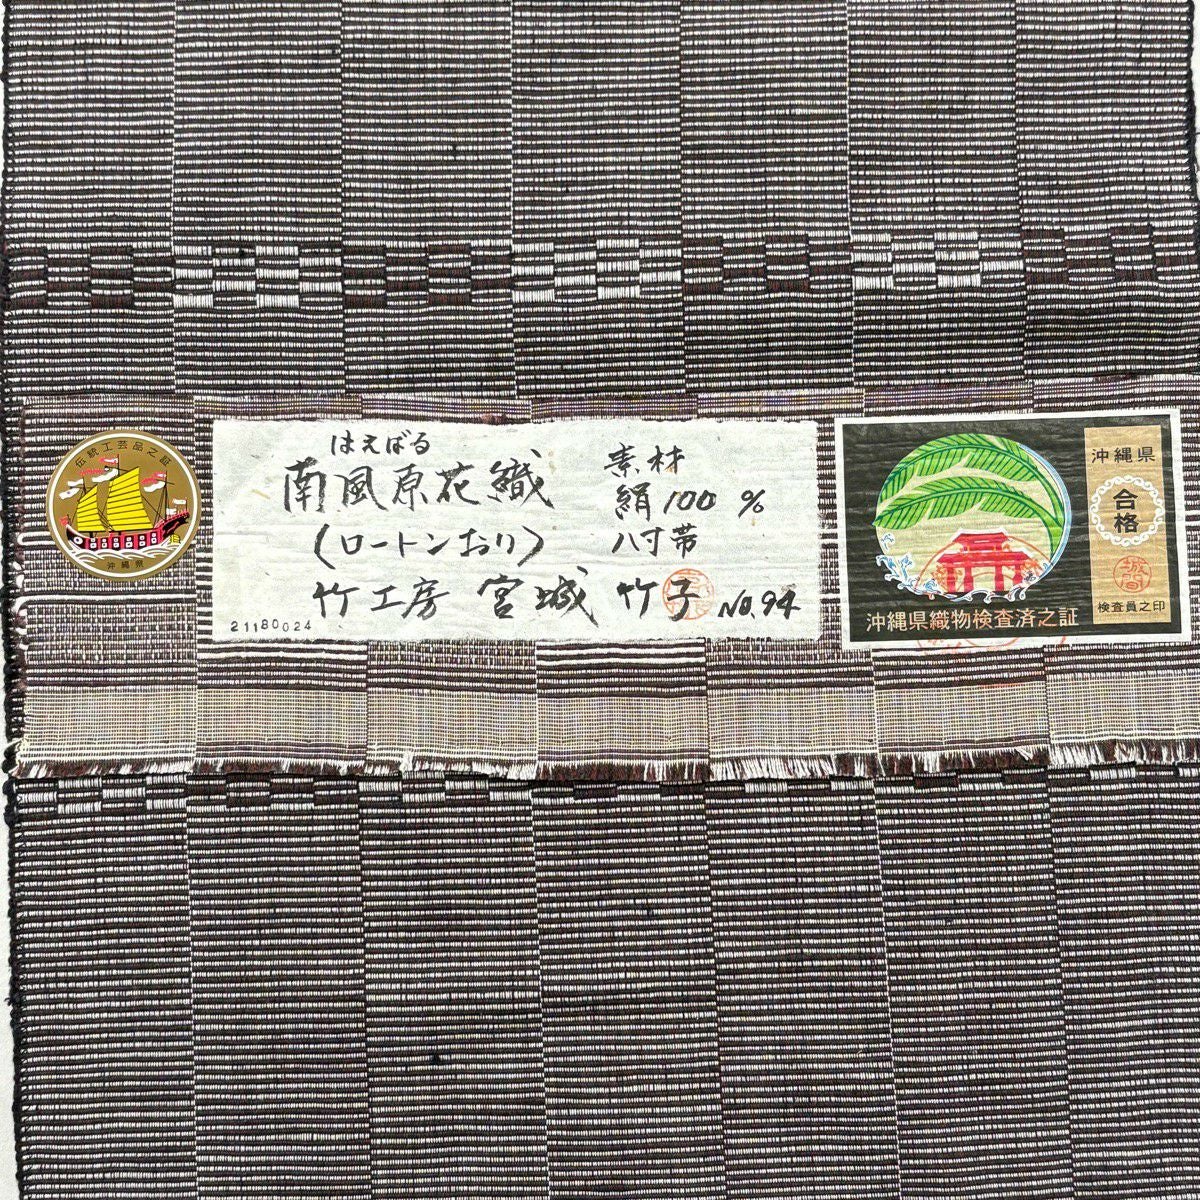 伝統工芸品之証
沖縄県
はえばる
南風原花織
(ロートンおり)
竹工房 宮城 竹子
21180024
素材
絹100%
八寸帯
No.94
沖縄県
合格
検査員之印
沖縄県織物検査済之証